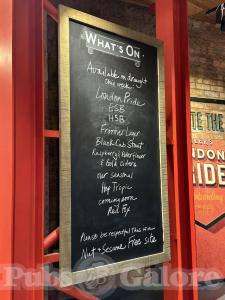 WHAT'S ON
Available on draught
this week:
London Pride
ESB
HSB
Frontier Lager
Black Cab Stout
Raspberry, Elderflower
& Gold Ciders
our seasonal
Hop Tropic
coming soon
Red Fox
Please be respectful this is a
Nut + Sesame Free site
TE THE
CK'S
NDON
RIDE
Pubs Galore